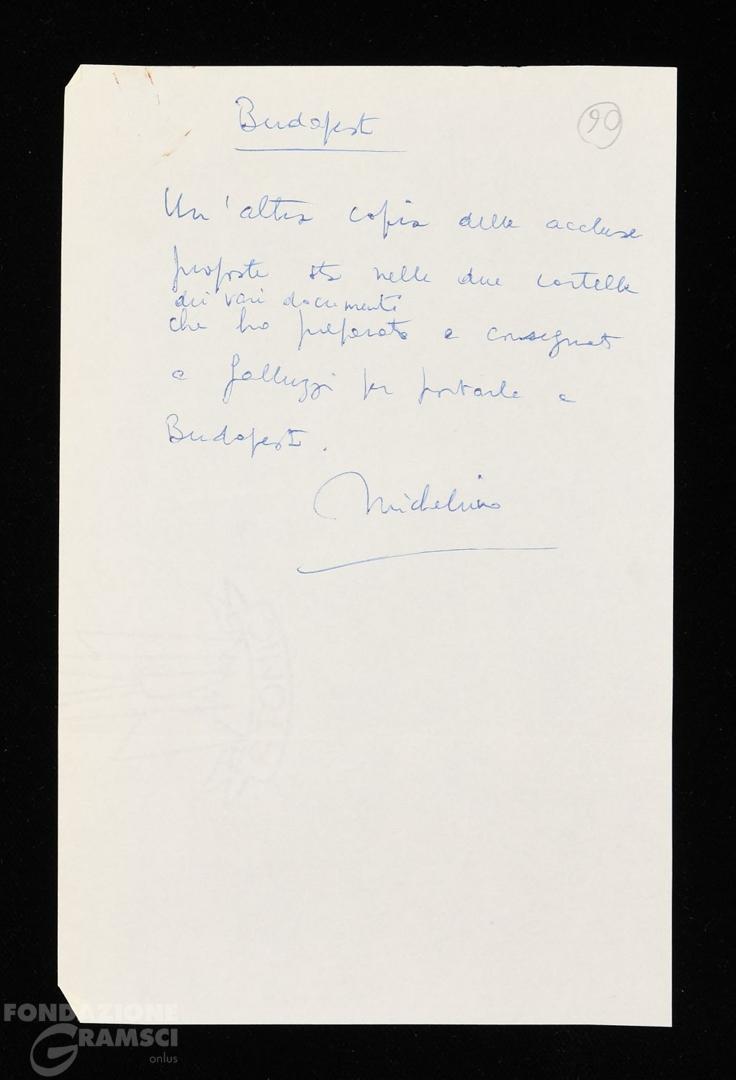 Budapest
90
Un'altra copia delle accluse
proposte sta nelle due cartelle
dei vari documenti
che ho preparato e consegnato
a Galluzzi per portarle a
Budapest.
Michelino
FONDAZIONE
GRAMSCI
onlus